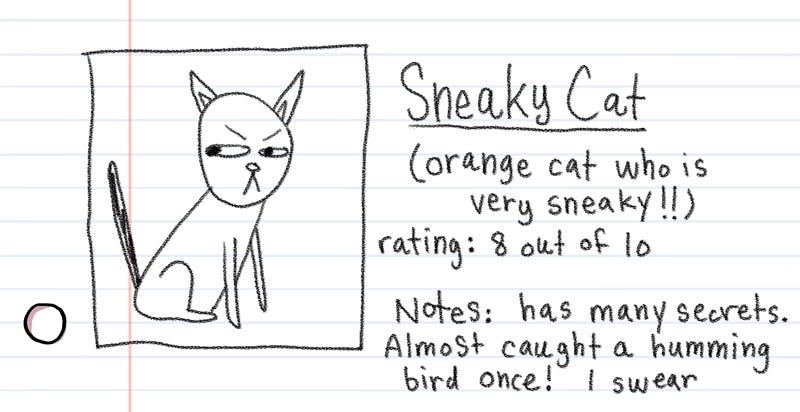 Sneaky Cat
(orange cat who is
very sneaky!!)
rating: 8 out of 10
Notes: has many secrets.
Almost caught a humming
bird once! I swear